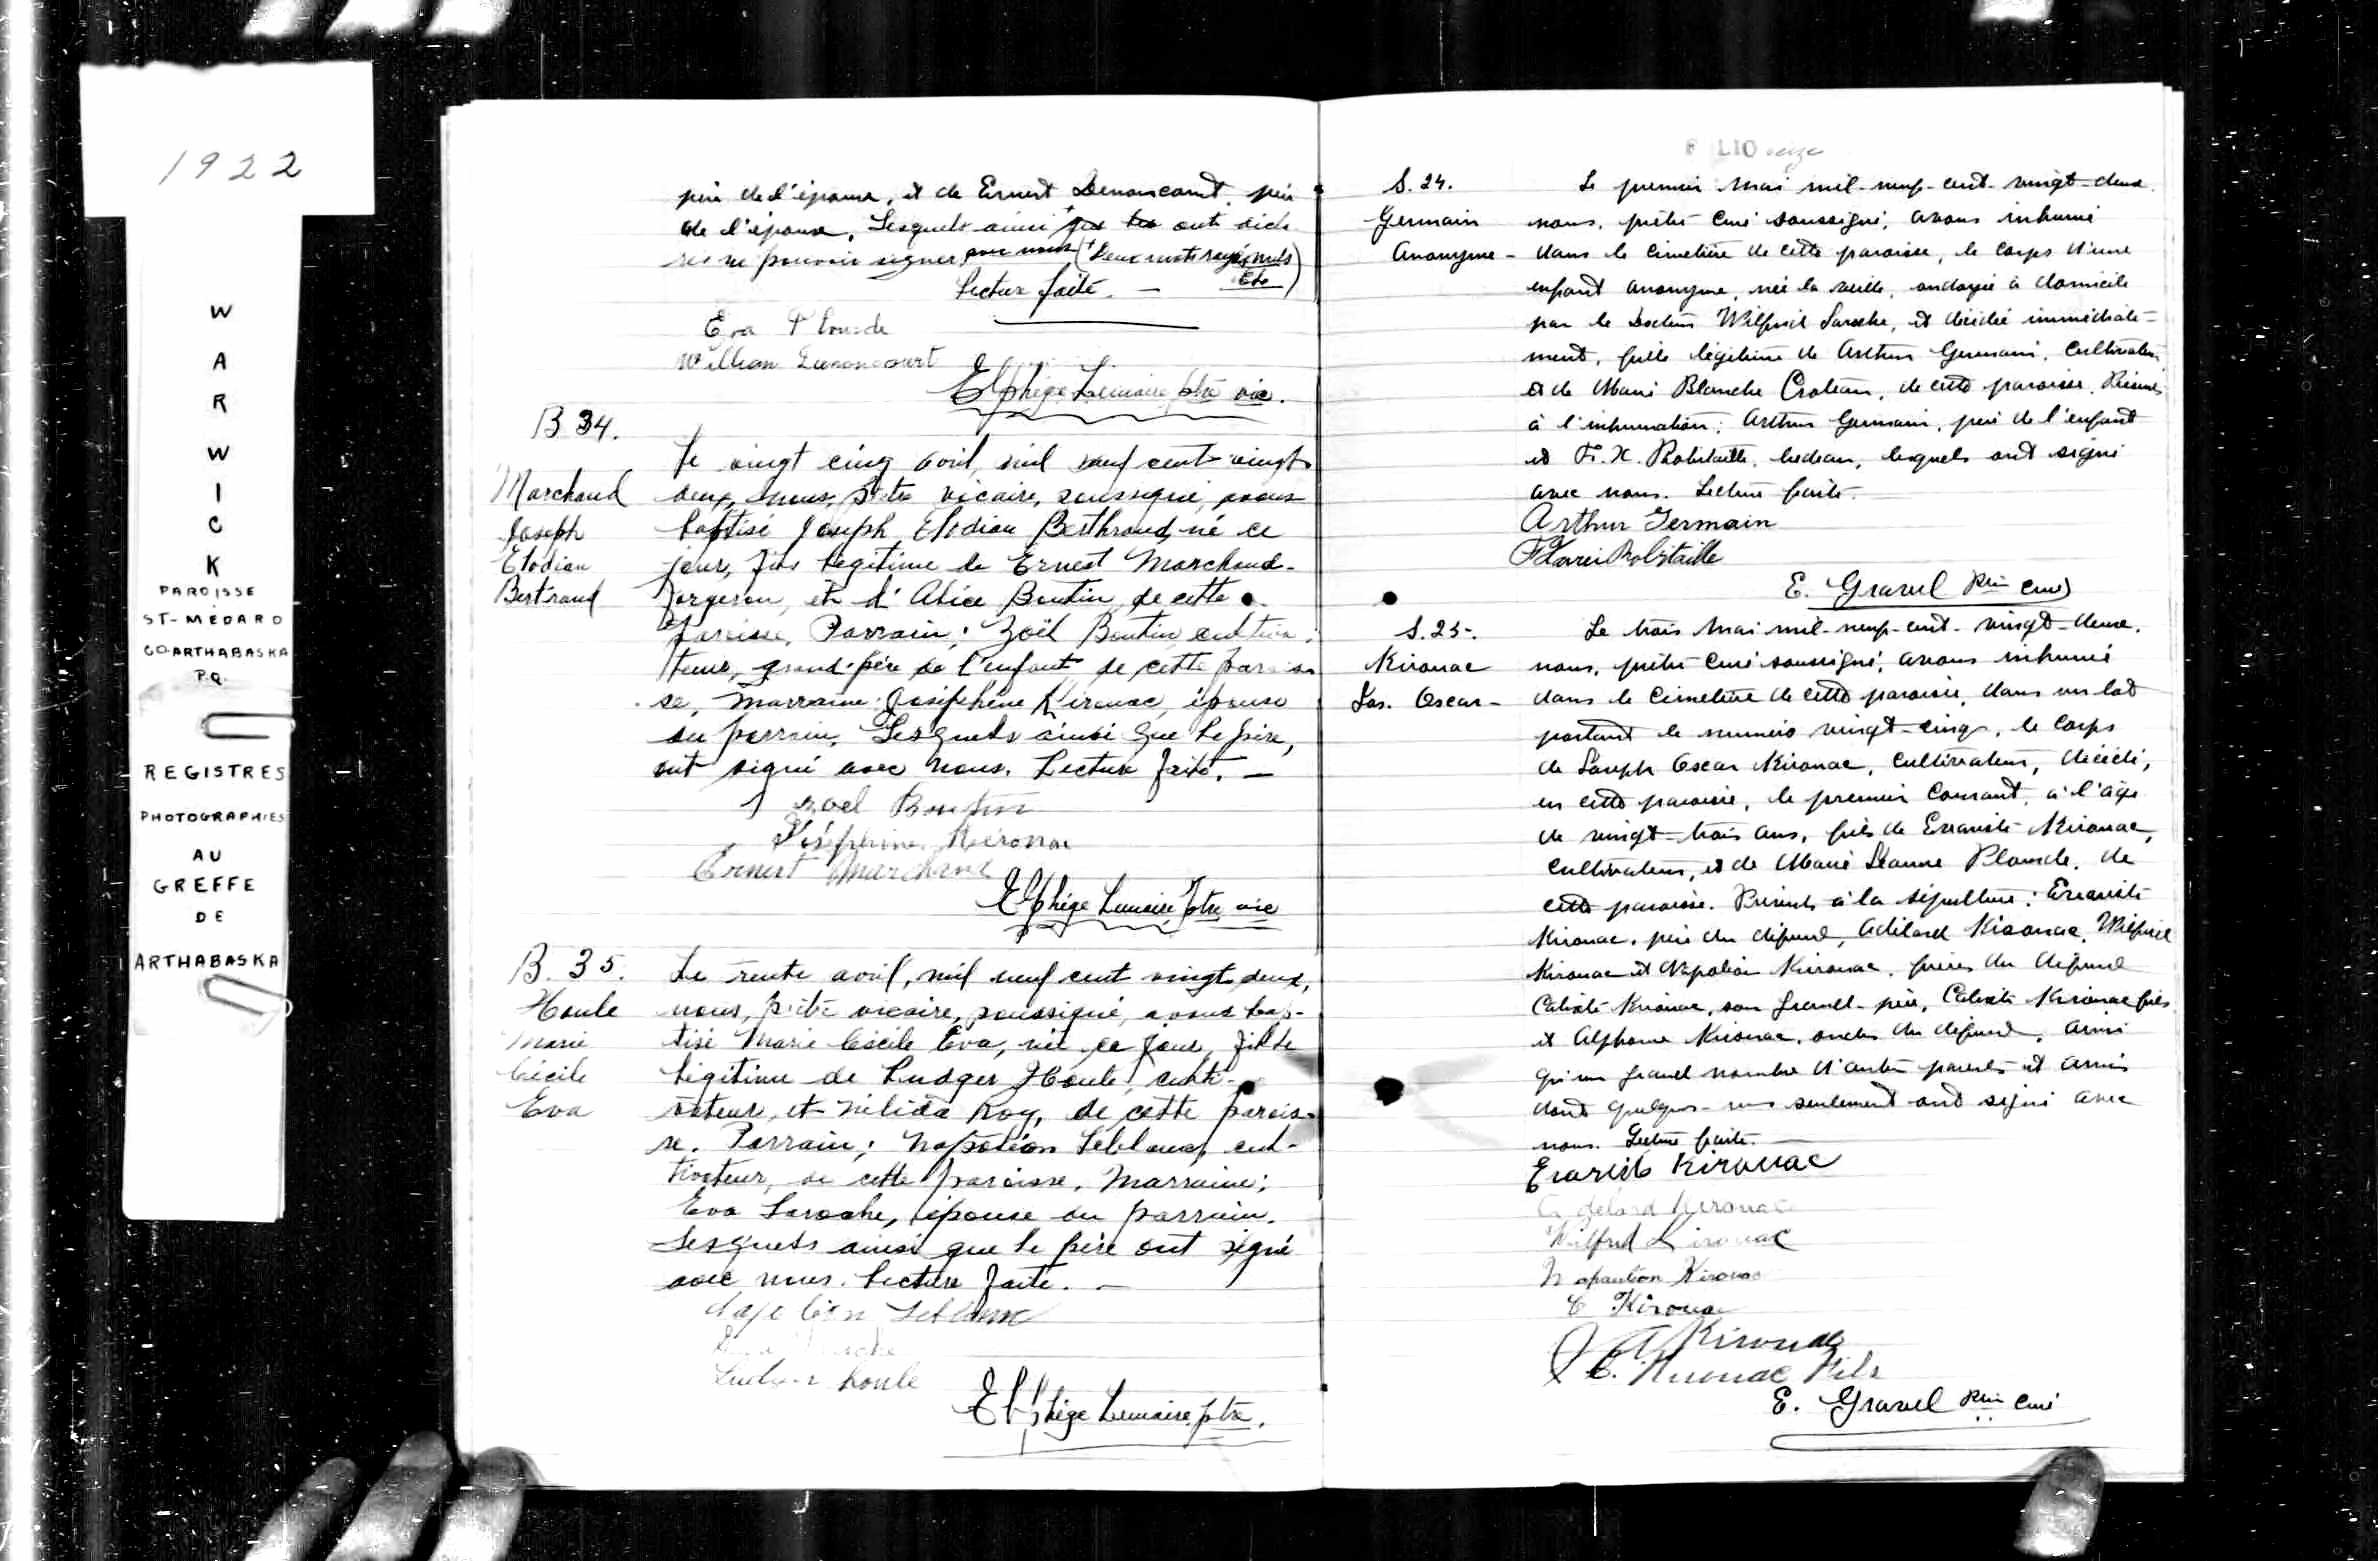 1922
W
A
R
W
I
C
K
PAROISSE
ST-MÉDARD
CO ARTHABASKA
P.Q.
REGISTRES
PHOTOGRAPHIES
AU
GREFFE
DE
ARTHABASKA
père de l'époux, et de Ernest Denoncourt, père
de l'épouse, Lesquels ainsi que les ont décla
rés ne pouvoir signer avec nous (+ Deux mots rayés, nuls)
Lecture faite. — 
Eva Plourde
William Denoncourt
Elphège Lemaire ptre vic.
B 34.
Marchand
Joseph
Elodian
Bertrand
Le vingt cinq avril, mil neuf cent vingt
deux, nous, prêtre vicaire, soussigné, avons
baptisé Joseph Elodian Berthrand, né ce
jour, fils légitime de Ernest Marchand
forgeron, et d'Alice Boutin, de cette
paroisse, Parrain: Zoël Boutin, cultiva-
teur, grand-père de l'enfant de cette parois
se, Marraine: Joséphine Kirouac, épouse
du parrain, Lesquels ainsi que le père,
ont signé avec nous. Lecture faite. —
Zoel Boutin
Joséphine Kirouac
Ernest Marchand
Elphège Lemaire ptre vic
B. 35.
Houle
Marie
Cécile
Eva
Le trente avril, mil neuf cent vingt deux,
nous, prêtre vicaire, soussigné, avons bap-
tisé Marie Cécile Eva, née ce jour, fille
légitime de Ludger Houle, culti-
vateur, et Mélida Roy, de cette parois-
se. Parrain; Napoléon Leblanc, cul-
tivateur, de cette paroisse, Marraine;
Eva Laroche, épouse du parrain.
Lesquels ainsi que le père ont signé
avec nous. Lecture faite. —
Napoléon Leblanc
Ludger Houle
Elphège Lemaire, ptre.
FOLIO seize
S. 24.
Germain
Anonyme -
Le premier mai mil-neuf-cent-vingt-deux
nous, prêtre curé soussigné, avons inhumé
dans le cimetière de cette paroisse, le corps d'une
enfant anonyme, née la veille, ondoyée à domicile
par le docteur Wilfrid Laroche, et décédée immédiate-
ment, fille légitime de Arthur Germain, cultivateur
et de Marie Blanche Croteau, de cette paroisse. Présents
à l'inhumation: Arthur Germain, père de l'enfant
et F. X. Robitaille, bedeau, lesquels ont signé
avec nous. Lecture faite.
Arthur Germain
F Xavier Robitaille
E. Gravel Ptre Curé
S. 25-.
Kirouac
Jos. Oscar -
Le trois mai mil-neuf-cent-vingt-deux,
nous, prêtre curé soussigné, avons inhumé
dans le cimetière de cette paroisse, dans un lot
portant le numéro vingt-cinq, le corps
de Joseph Oscar Kirouac, cultivateur, décédé,
en cette paroisse, le premier courant, à l'âge
de vingt-trois ans, fils de Evariste Kirouac,
cultivateur, et de Marie Jeanne Plourde, de
cette paroisse. Présents à la sépulture: Evariste
Kirouac, père du défunt, Adélard Kirouac, Wilfrid
Kirouac et Napoléon Kirouac, frères du défunt
Calixte Kirouac, son grand-père, Calixte Kirouac fils
et Alphonse Kirouac, oncles du défunt, ainsi
qu'un grand nombre d'autres parents et amis
dont quelques-uns seulement ont signé avec
nous. Lecture faite.
Evariste Kirouac
Adelard Kirouac
Wilfrid Kirouac
Napoléon Kirouac
C Kirouac
J A Kirouac
C. Kirouac Fils
E. Gravel Ptre Curé